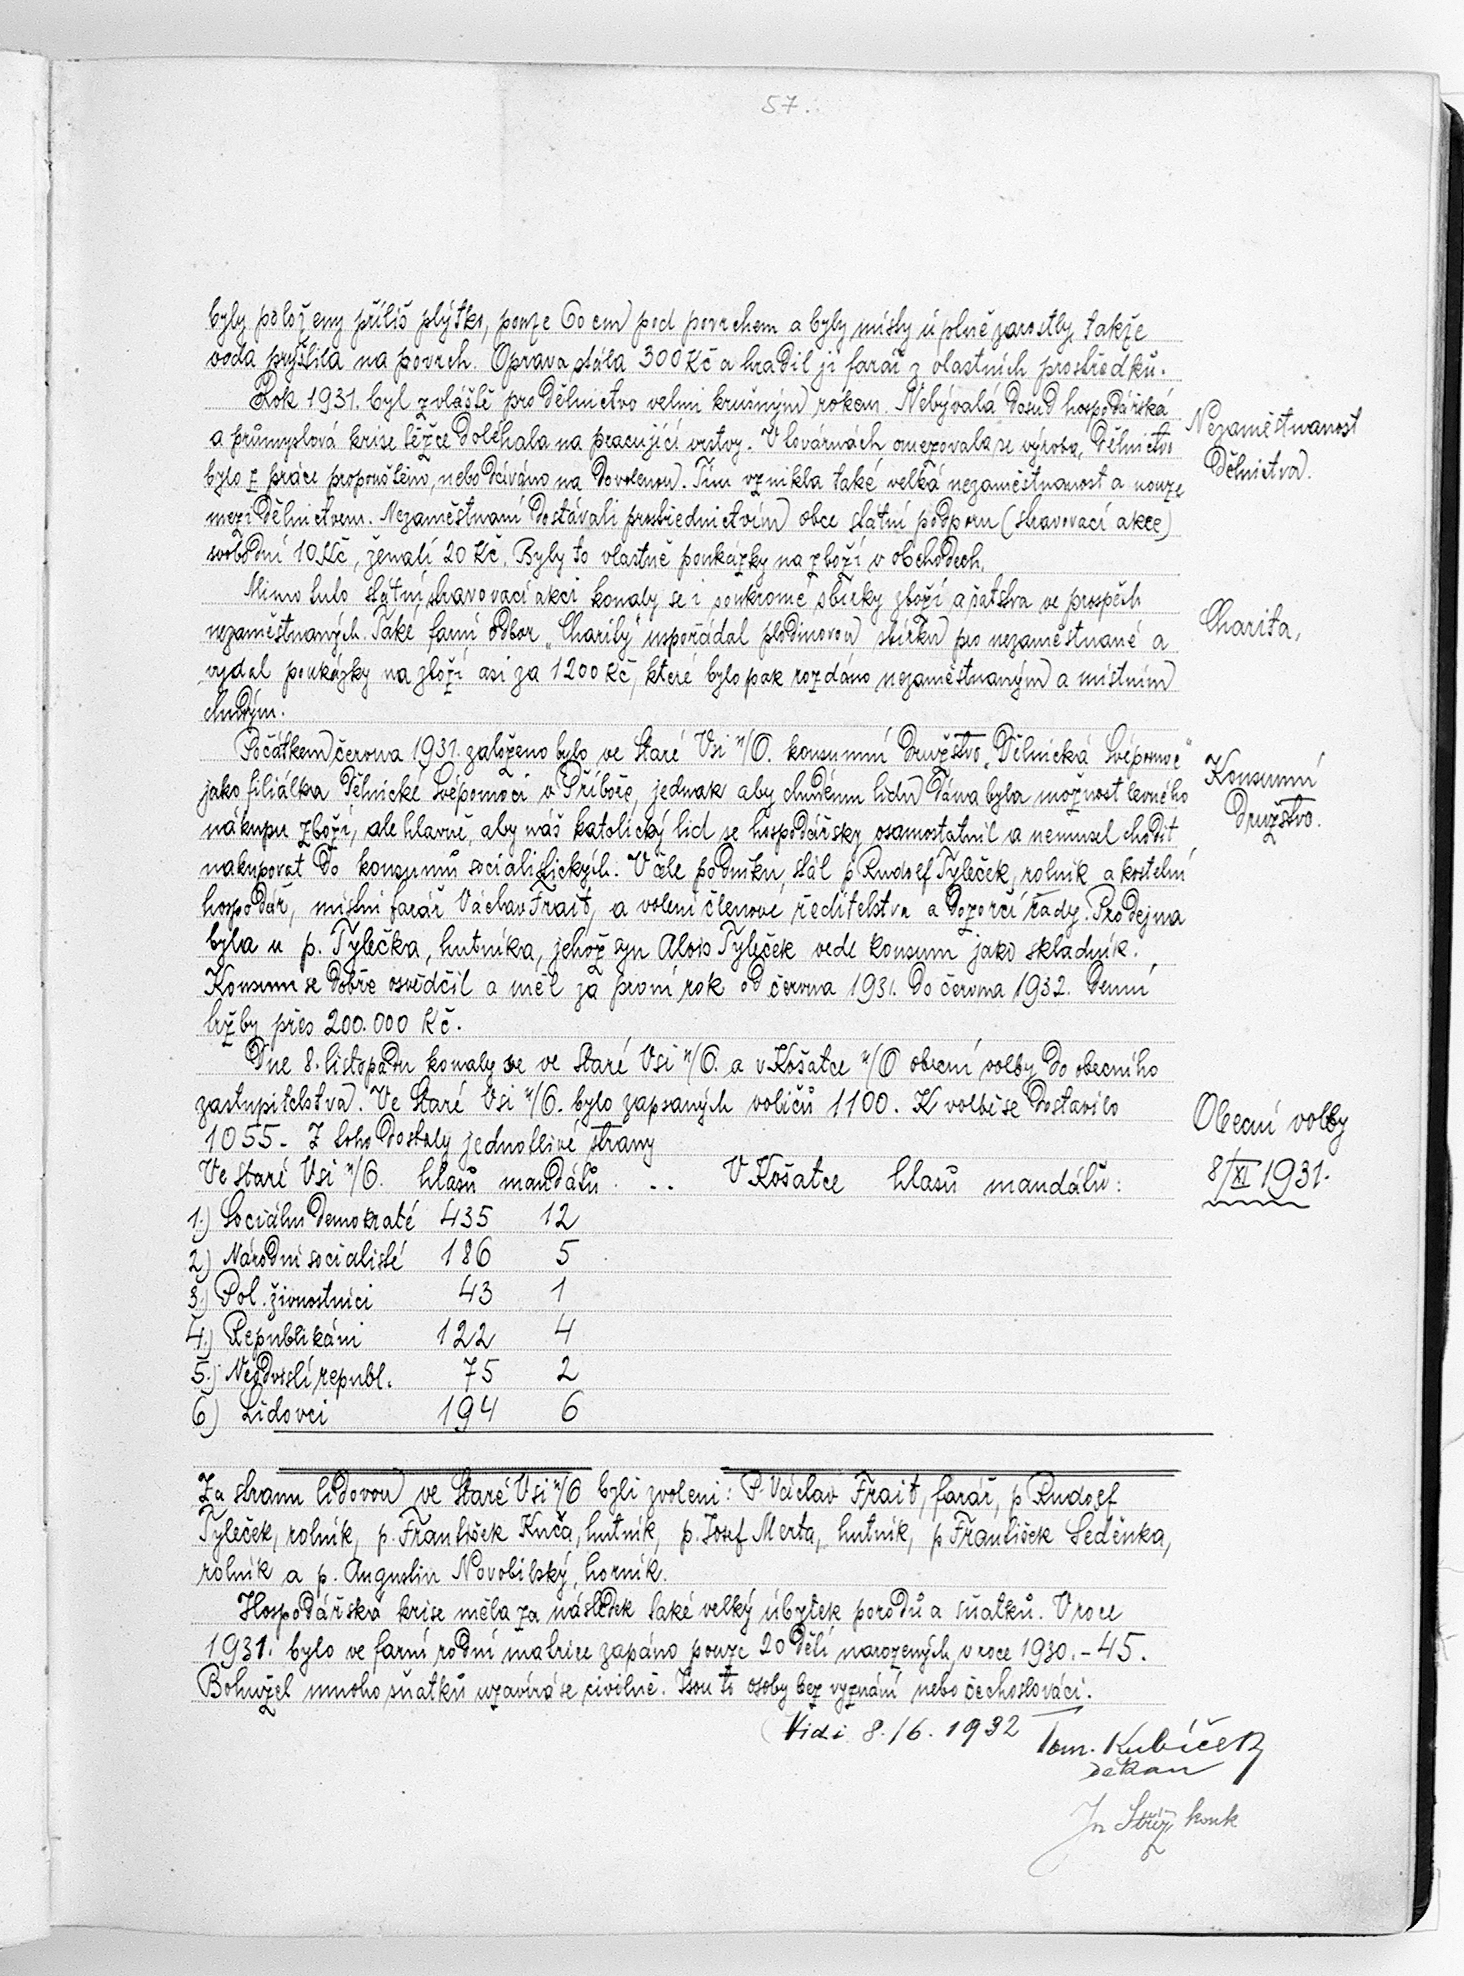 57.
byly položeny příliš plýtko, pouze 60 cm pod povrchem a byly místy úplně zarostly, takže
voda prýštila na povrch. Oprava stála 300 Kč a hradil ji farář z vlastních prostředků.
Rok 1931. byl zvláště pro dělnictvo velmi krušným rokem. Nebývalá dosud hospodářská
Nezaměstnanost
a průmyslová krise těžce doléhala na pracující vrstvy. V továrnách omezovala se výroba, dělnictvo
dělnictva.
bylo z práce propouštěno, nebo dáváno na dovolenou. Tím vznikla také velká nezaměstnanost a nouze
mezi dělnictvem. Nezaměstnaní dostávali prostřednictvím obce státní podporu (stravovací akce)
svobodní 10 Kč, ženatí 20 Kč. Byly to vlastně poukázky na zboží v obchodech.
Mimo tuto státní stravovací akci konaly se i soukromé sbírky zboží a šatstva ve prospěch
Charita,
nezaměstnaných. Také farní odbor „Charity" uspořádal plodinovou sbírku pro nezaměstnané a
vydal poukázky na zboží asi za 1200 Kč, které bylo pak rozdáno nezaměstnaným a místním
chudým.
Počátkem června 1931. založeno bylo ve Staré Vsi n/O. konsumní družstvo „Dělnická Svépomoc"
Konsumní
jako filiálka Dělnické Svépomoci v Příboře, jednak aby chudému lidu dána byla možnost levného
družstvo.
nákupu zboží, ale hlavně, aby náš katolický lid se hospodářsky osamostatnil a nemusel chodit
nakupovat do konsumů socialistických. V čele podniku stál p Rudolf Tyleček, rolník a kostelní
hospodář, místní farář Václav Frait, a volení členové ředitelstva a dozorčí rady. Prodejna
byla u p. Tylečka, hutníka, jehož syn Alois Tyleček vede konsum jako skladník.
Konsum se dobře osvědčil a měl za první rok od června 1931. do června 1932. denní
tržby přes 200.000 Kč.
Dne 8. listopadu konaly se ve Staré Vsi n/O. a v Košatce n/O obecní volby do obecního
zastupitelstva. Ve Staré Vsi n/O. bylo zapsaných voličů 1100. K volbě se dostavilo
Obecní volby
1055 - Z toho dostaly jednotlivé strany
8/XI 1931.
Ve Staré Vsi n/O. hlasů mandátů . .. V Košatce hlasů mandátů:
1.) Sociální demokraté 435 12
2) Národní socialisté 186 5
3.) Pol. živnostníci 43 1
4.) Republikáni 122 4
5.) Neodvislí republ. 75 2
6) Lidovci 194 6
Za stranu lidovou ve Staré Vsi n/O byli zvoleni: P. Václav Frait, farář, p Rudolf
Tyleček, rolník, p. František Kuča, hutník, p. Josef Merta, hutník, p František Seděnka,
rolník a p. Augustin Novobilský, horník.
Hospodářská krise měla za následek také velký úbytek porodů a sňatků. V roce
1931. bylo ve farní rodní matrice zapáno pouze 20 dětí narozených, v roce 1930. - 45.
Bohužel mnoho sňatků uzavírá se civilně. Jsou to osoby bez vyznání nebo čechoslováci.
Vidi 8./6. 1932 Tom. Kubíček
děkan